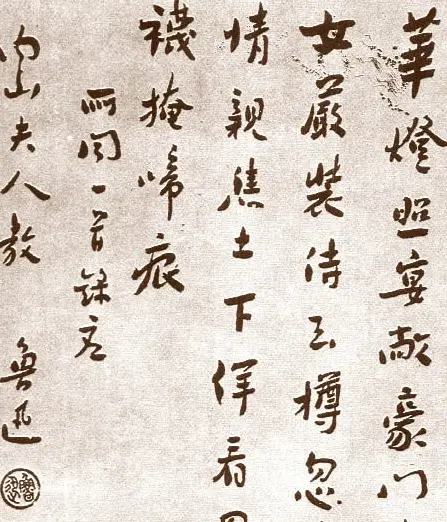 華燈照宴敞豪門
女嚴裝侍玉樽忽
情親焦土下佯看
襪掩啼痕
所聞一首錄應
内山夫人教
魯迅
魯迅